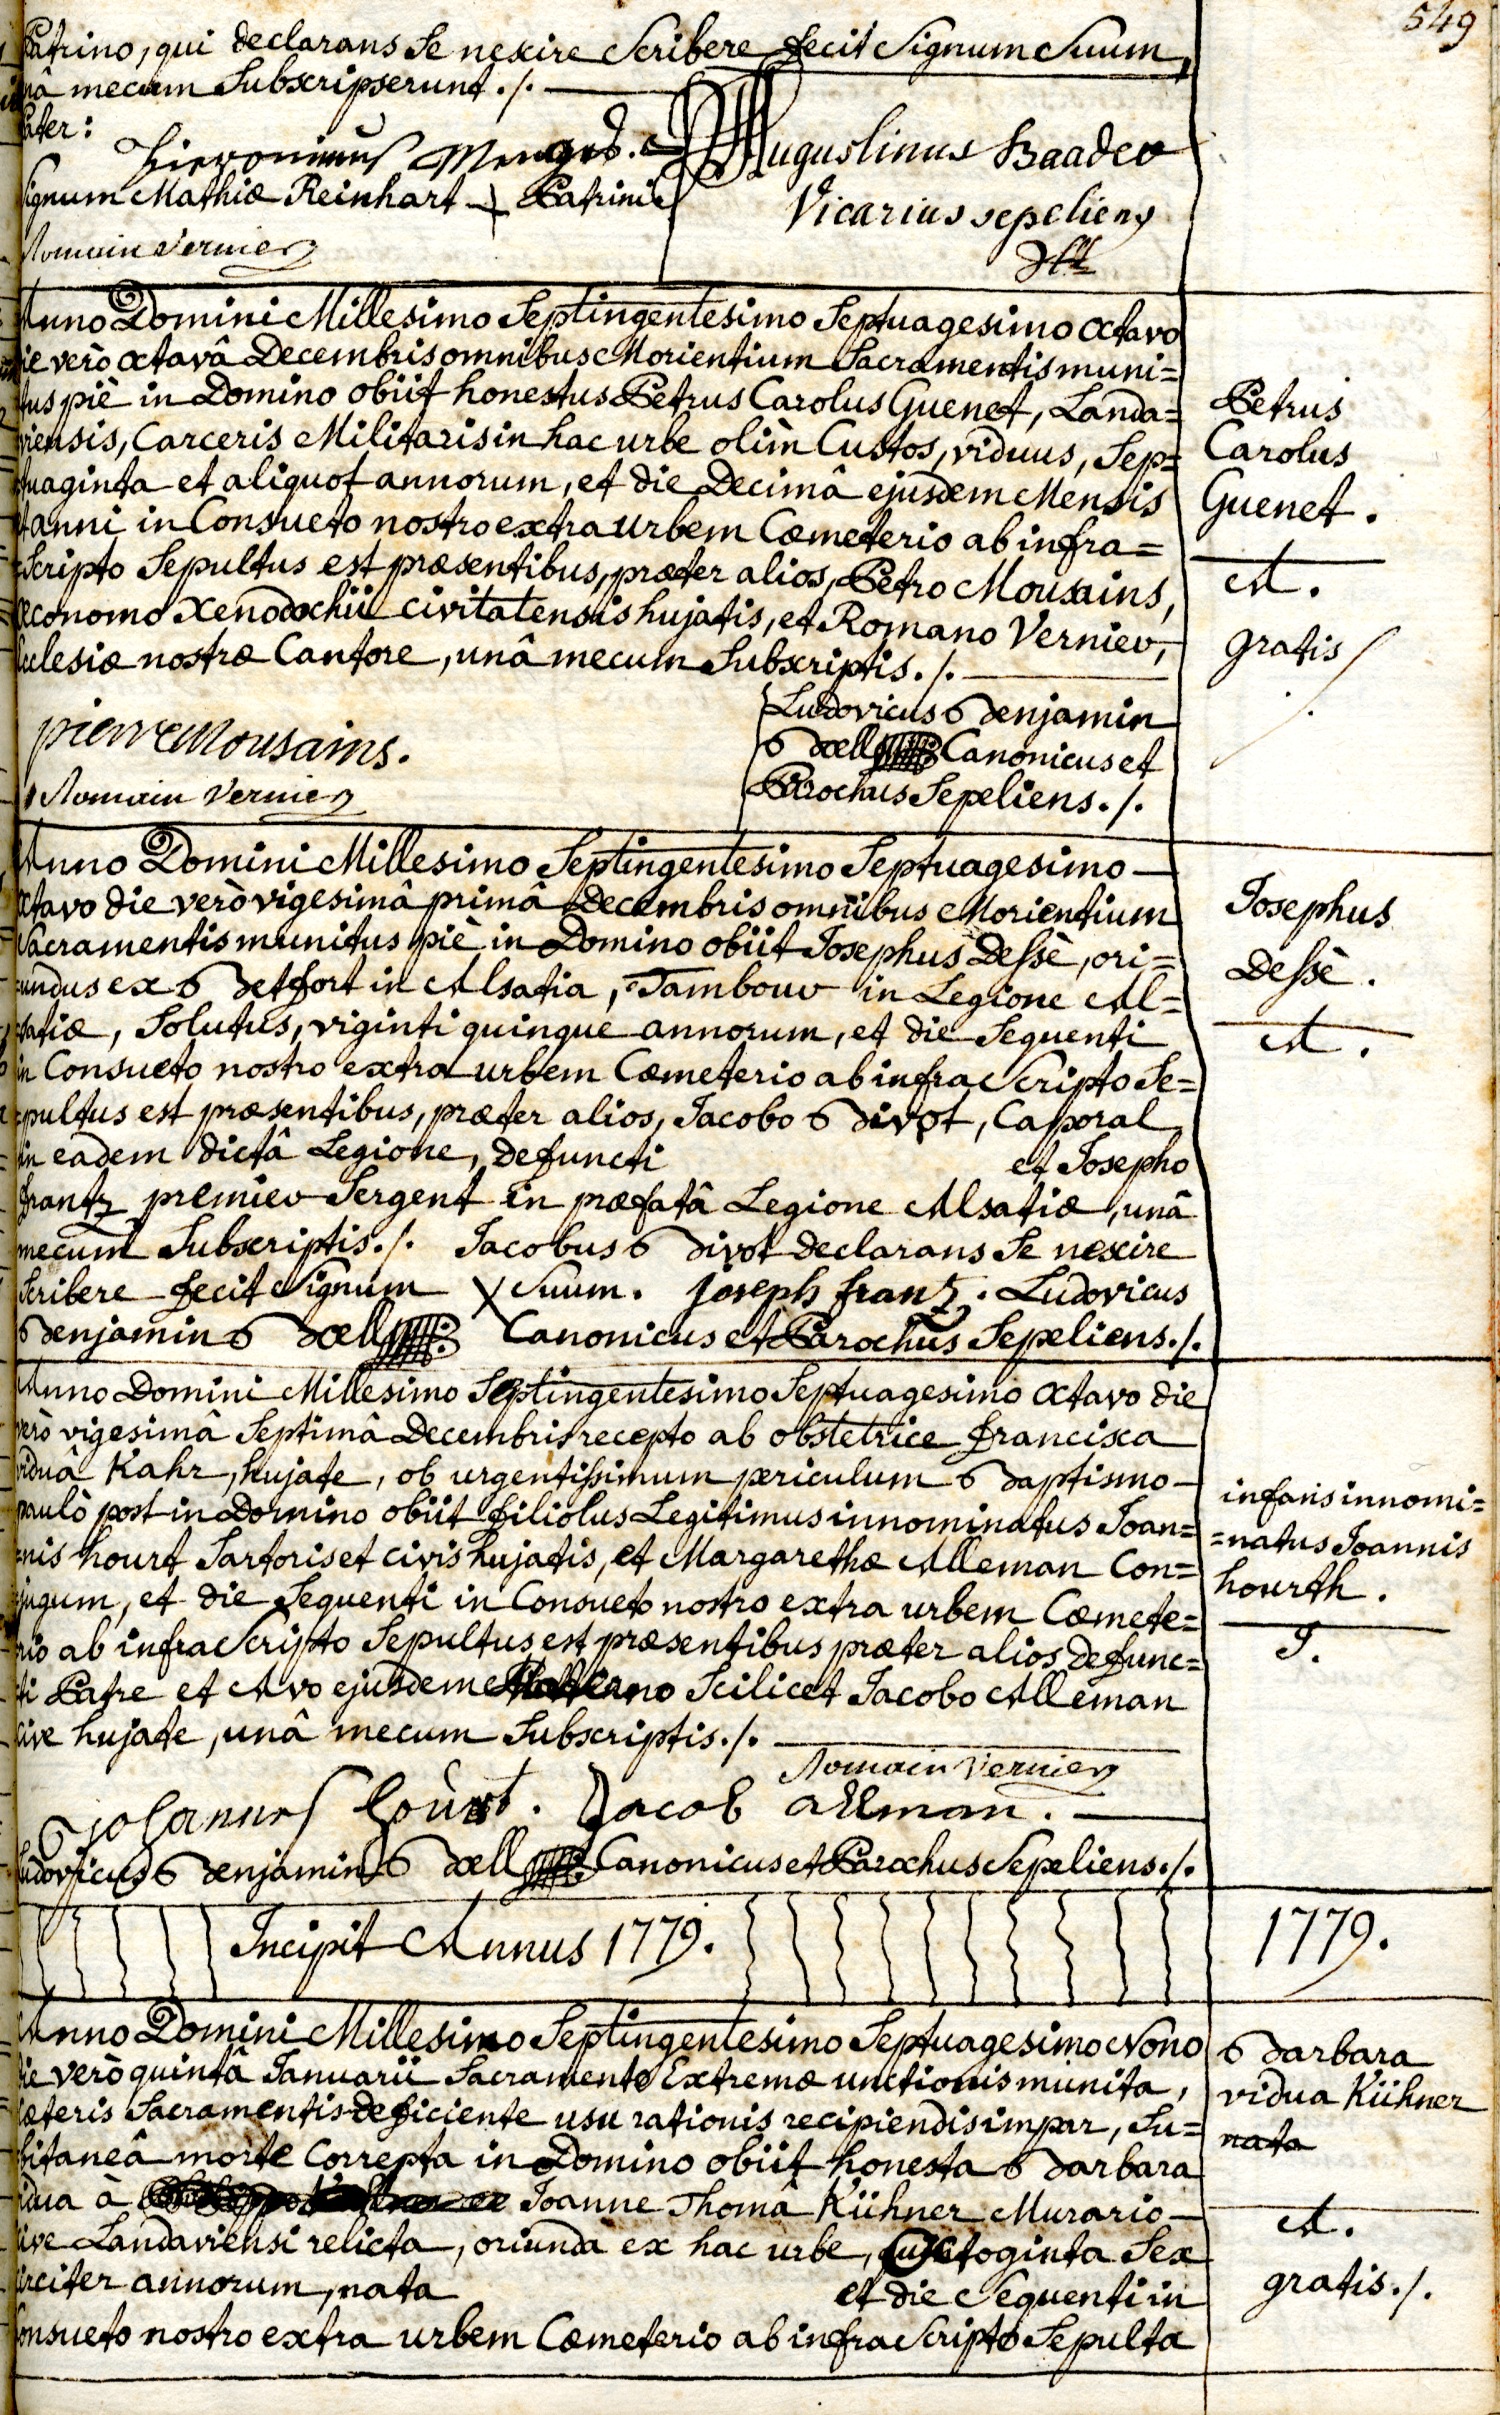 549
Patrino, qui declarans Se nescire Scribere fecit Signum Suum,
unâ mecum Subscripserunt ./.
Pater:
Hieronimus Menges.
Augustinus Baader
Signum Mathiæ Reinhart + Patrini
Vicarius sepeliens
Romain Vernier
Anno Domini Millesimo Septingentesimo Septuagesimo octavo
die verò octavâ Decembris omnibus Morientium Sacramentis muni=
tus piè in Domino obiit honestus Petrus Carolus Guenet, Landa=
viensis, Carceris Militaris in hac urbe olim Custos, viduus, Sep=
tuaginta et aliquot annorum, et die Decimâ ejusdem Mensis
et anni in Consueto nostro extra urbem Cœmeterio ab infra=
=Scripto Sepultus est præsentibus, præter alios, Petro Mousains,
œconomo Xenodochii civitatensis hujatis, et Romano Vernier,
Ecclesiæ nostræ Cantore, unâ mecum Subscriptis ./.
Petrus
Carolus
Guenet.
A.
gratis
pierre Mousains.
Romain Vernier
Ludovicus Benjamin
Bœll Canonicus et
Parochus Sepeliens ./.
Anno Domini Millesimo Septingentesimo Septuagesimo
octavo die verò vigesimâ primâ Decembris omnibus Morientium
Sacramentis munitus piè in Domino obiit Josephus Dessè, ori=
=undus ex Betfort in Alsatia, Tambour in Legione Al=
=satiæ, Solutus, viginti quinque annorum, et die Sequenti
in Consueto nostro extra urbem Cœmeterio ab infra Scripto Se=
=pultus est præsentibus, præter alios, Jacobo Bivot, Caporal
in eadem dictâ Legione, defuncti et Josepho
frantz premier Sergent in præfatâ Legione Alsatiæ, unâ
mecum Subscriptis ./. Jacobus Bivot declarans Se nescire
Scribere fecit Signum X Suum. joseph frantz. Ludovicus
Benjamin Bœll Canonicus et Parochus Sepeliens ./.
Josephus
Dessè.
A.
Anno Domini Millesimo Septingentesimo Septuagesimo octavo die
verò vigesimâ Septimâ Decembris recepto ab obstetrice francisca
viduâ Kahr, hujate, ob urgentissimum periculum Baptismo
paulò post in Domino obiit filiolus Legitimus innominatus Joan=
=nis hourt Sartoris et civis hujatis, et Margarethæ Alleman Con=
jugum, et die Sequenti in Consueto nostro extra urbem Cœmete=
rio ab infra Scripto Sepultus est præsentibus præter alios defunc=
ti Patre et Avo ejusdem Materno Scilicet Jacobo Alleman
cive hujate, unâ mecum Subscriptis ./.
infans innomi=
=natus Joannis
hourth.
J.
Romain Vernier
Johannes hourt. Jacob allman.
Ludovicus Benjamin Bœll Canonicus et Parochus Sepeliens ./.
Incipit Annus 1779.
1779.
Anno Domini Millesimo Septingentesimo Septuagesimo Nono
die verò quintâ Januarii Sacramento Extremæ unctionis munita,
cæteris Sacramentis deficiente usu rationis recipiendis impar, Su=
bitaneâ morte Correpta in Domino obiit honesta Barbara
vidua à Joanne Thomâ Kühner Murario
cive Landaviensi relicta, oriunda ex hac urbe, octoginta Sex
circiter annorum, nata et die Sequenti in
Consueto nostro extra urbem Cœmeterio ab infra Scripto Sepulta
Barbara
vidua Kühner
nata
A.
gratis ./.